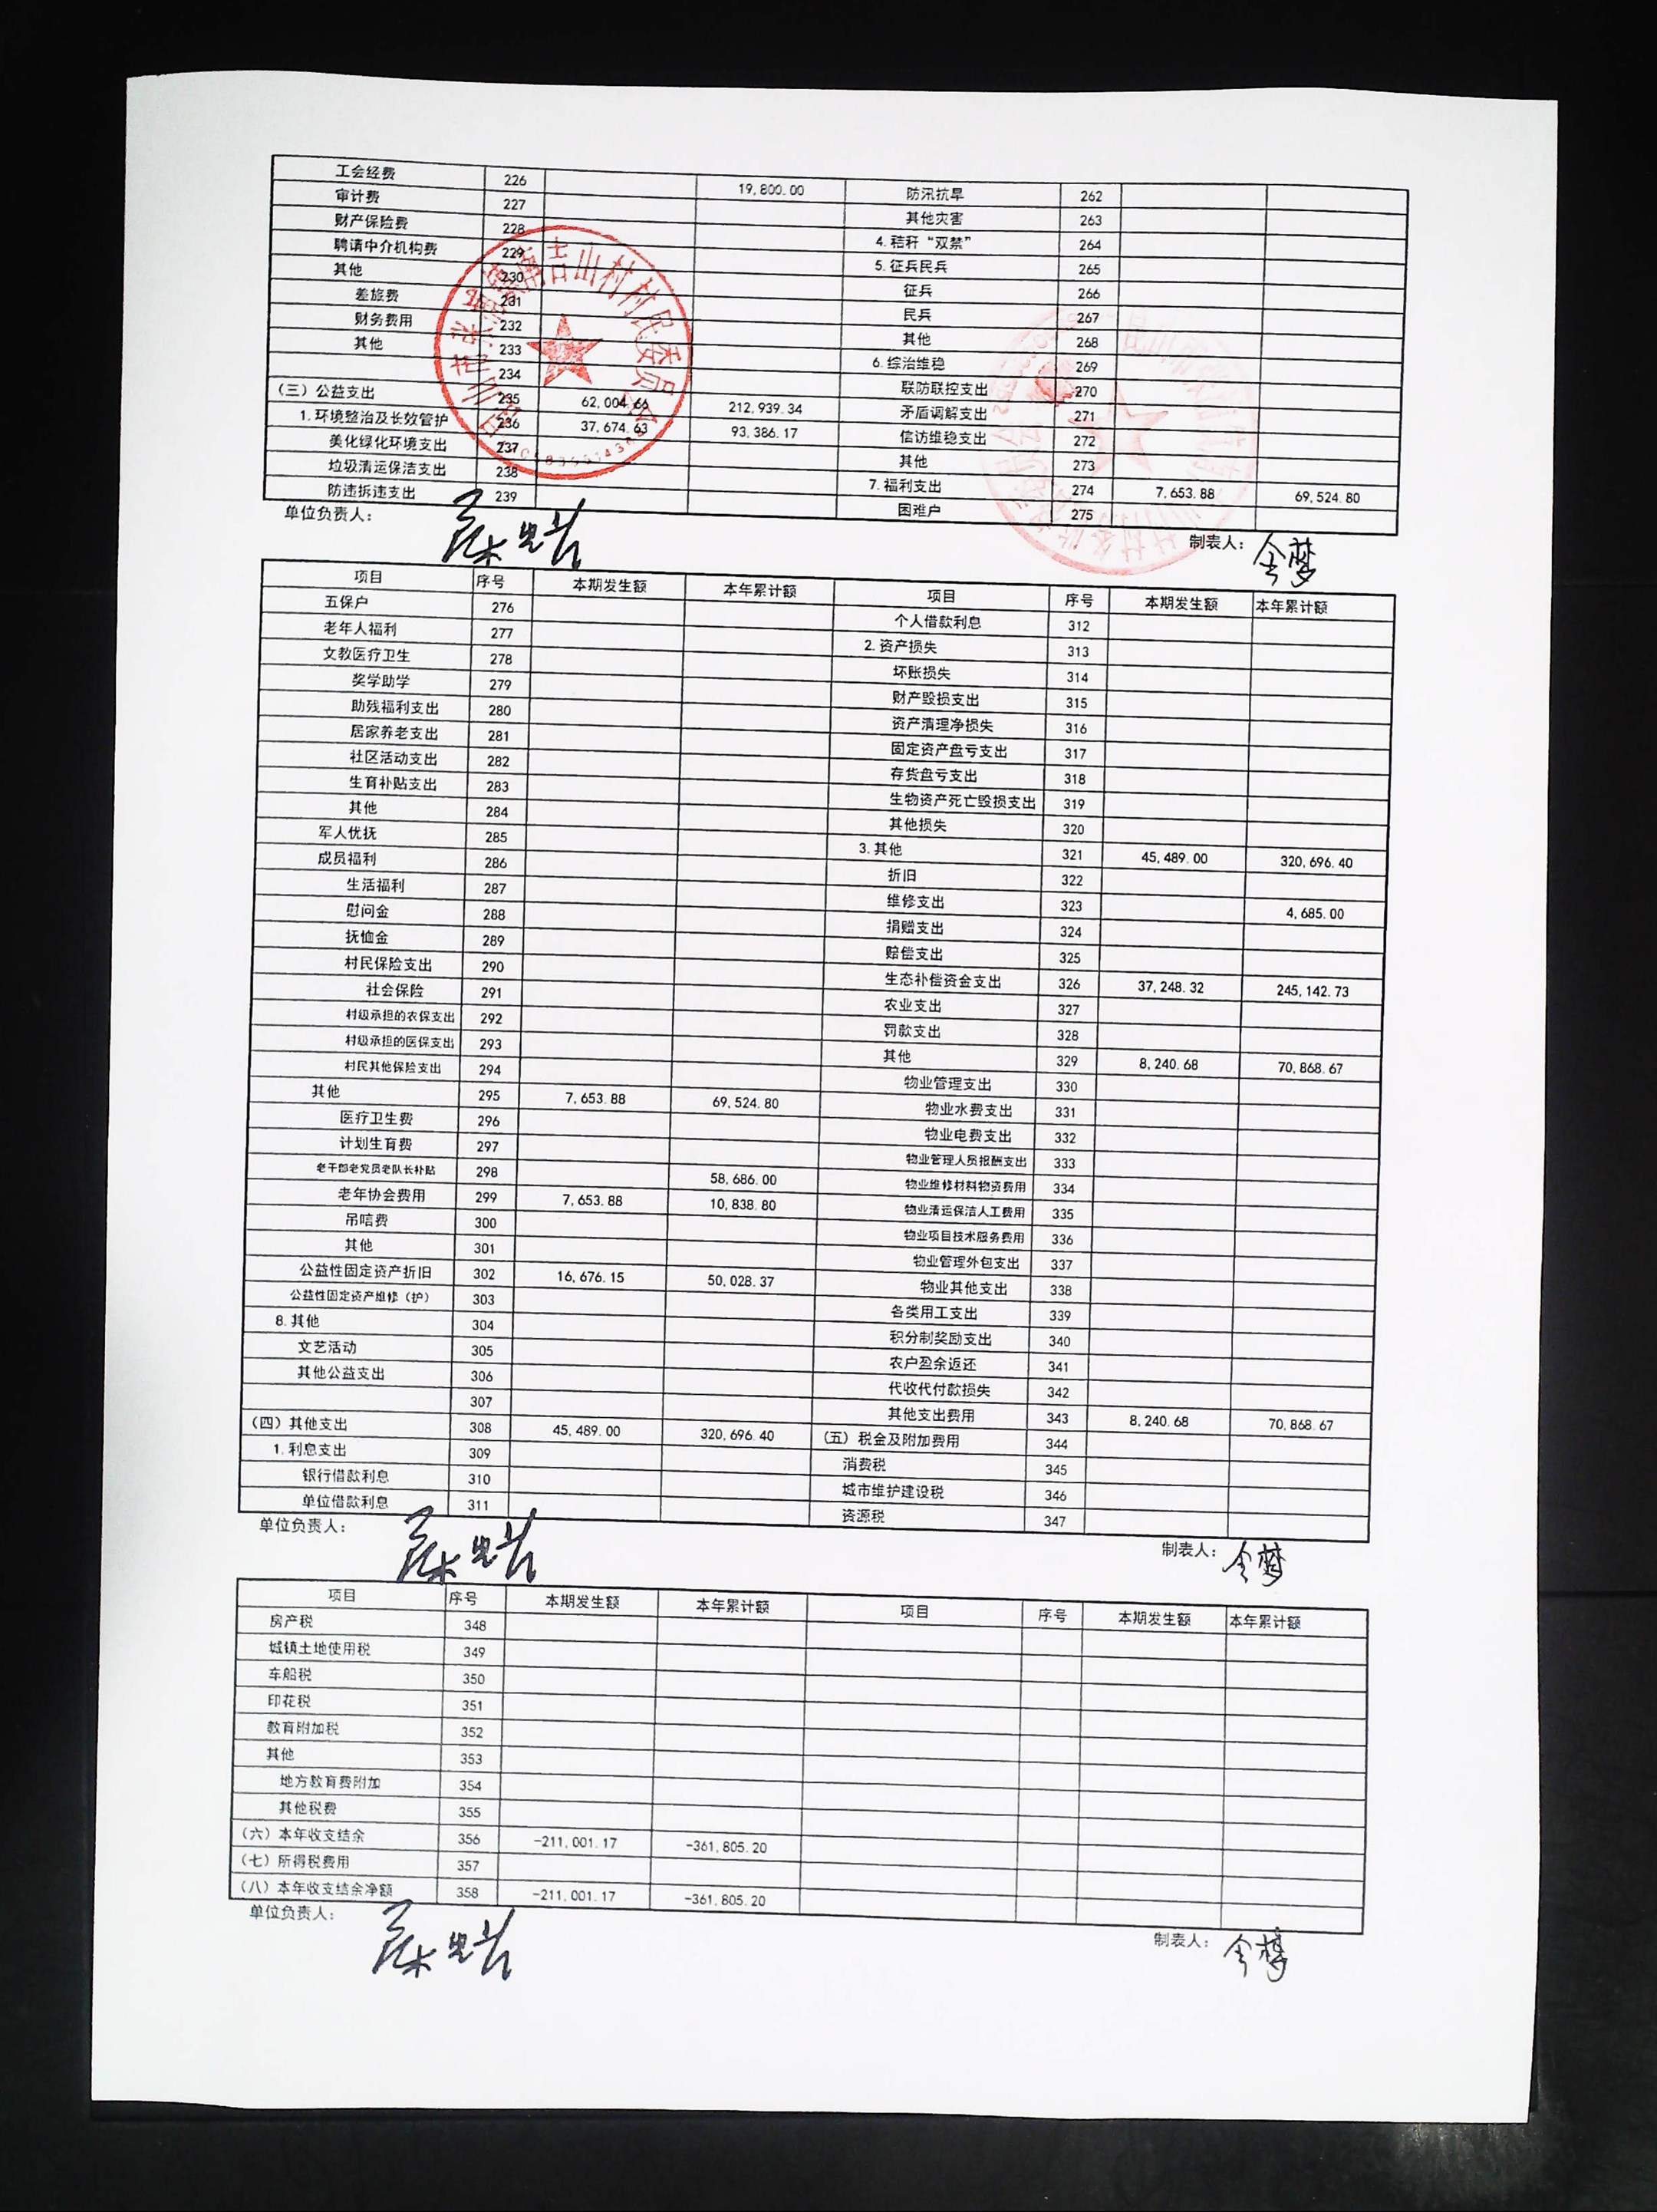 工会经费 226 19,800.00 防汛抗旱 262
审计费 227 其他灾害 263
财产保险费 228 4.秸秆“双禁” 264
聘请中介机构费 229 5.征兵民兵 265
其他 230 征兵 266
差旅费 231 民兵 267
财务费用 232 其他 268
其他 233 6.综治维稳 269
234 联防联控支出 270
(三)公益支出 235 62,004.66 212,939.34 矛盾调解支出 271
1.环境整治及长效管护 236 37,674.63 93,386.17 信访维稳支出 272
美化绿化环境支出 237 其他 273
垃圾清运保洁支出 238 7.福利支出 274 7,653.88 69,524.80
防违拆违支出 239 困难户 275
单位负责人: 制表人:
项目 序号 本期发生额 本年累计额 项目 序号 本期发生额 本年累计额
五保户 276 个人借款利息 312
老年人福利 277 2.资产损失 313
文教医疗卫生 278 坏账损失 314
奖学助学 279 财产毁损支出 315
助残福利支出 280 资产清理净损失 316
居家养老支出 281 固定资产盘亏支出 317
社区活动支出 282 存货盘亏支出 318
生育补贴支出 283 生物资产死亡毁损支出 319
其他 284 其他损失 320
军人优抚 285 3.其他 321 45,489.00 320,696.40
成员福利 286 折旧 322
生活福利 287 维修支出 323 4,685.00
慰问金 288 捐赠支出 324
抚恤金 289 赔偿支出 325
村民保险支出 290 生态补偿资金支出 326 37,248.32 245,142.73
社会保险 291 农业支出 327
村级承担的农保支出 292 罚款支出 328
村级承担的医保支出 293 其他 329 8,240.68 70,868.67
村民其他保险支出 294 物业管理支出 330
其他 295 7,653.88 69,524.80 物业水费支出 331
医疗卫生费 296 物业电费支出 332
计划生育费 297 物业管理人员报酬支出 333
老干部老党员老队长补贴 298 58,686.00 物业维修材料物资费用 334
老年协会费用 299 7,653.88 10,838.80 物业清运保洁人工费用 335
吊唁费 300 物业项目技术服务费用 336
其他 301 物业管理外包支出 337
公益性固定资产折旧 302 16,676.15 50,028.37 物业其他支出 338
公益性固定资产维修(护) 303 各类用工支出 339
8.其他 304 积分制奖励支出 340
文艺活动 305 农户盈余返还 341
其他公益支出 306 代收代付款损失 342
307 其他支出费用 343 8,240.68 70,868.67
(四)其他支出 308 45,489.00 320,696.40 (五)税金及附加费用 344
1.利息支出 309 消费税 345
银行借款利息 310 城市维护建设税 346
单位借款利息 311 资源税 347
单位负责人: 制表人:
项目 序号 本期发生额 本年累计额 项目 序号 本期发生额 本年累计额
房产税 348
城镇土地使用税 349
车船税 350
印花税 351
教育附加税 352
其他 353
地方教育费附加 354
其他税费 355
(六)本年收支结余 356 -211,001.17 -361,805.20
(七)所得税费用 357
(八)本年收支结余净额 358 -211,001.17 -361,805.20
单位负责人: 制表人: